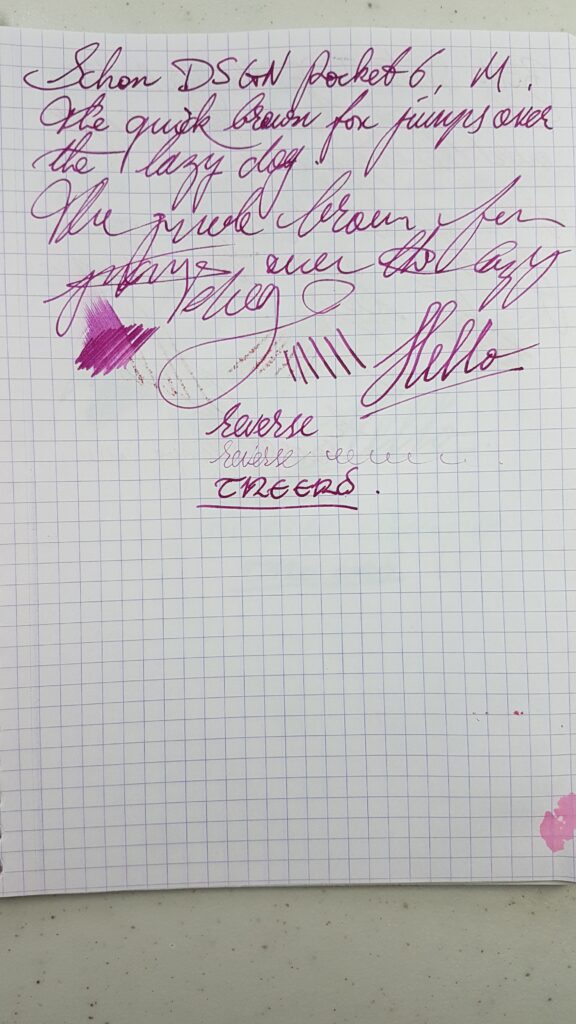 Schon DSGN Pocket 6, M.
The quick brown fox jumps over
the lazy dog.
The quick brown fox
jumps over the lazy
dog
Hello
reverse
reverse
CHEERS.